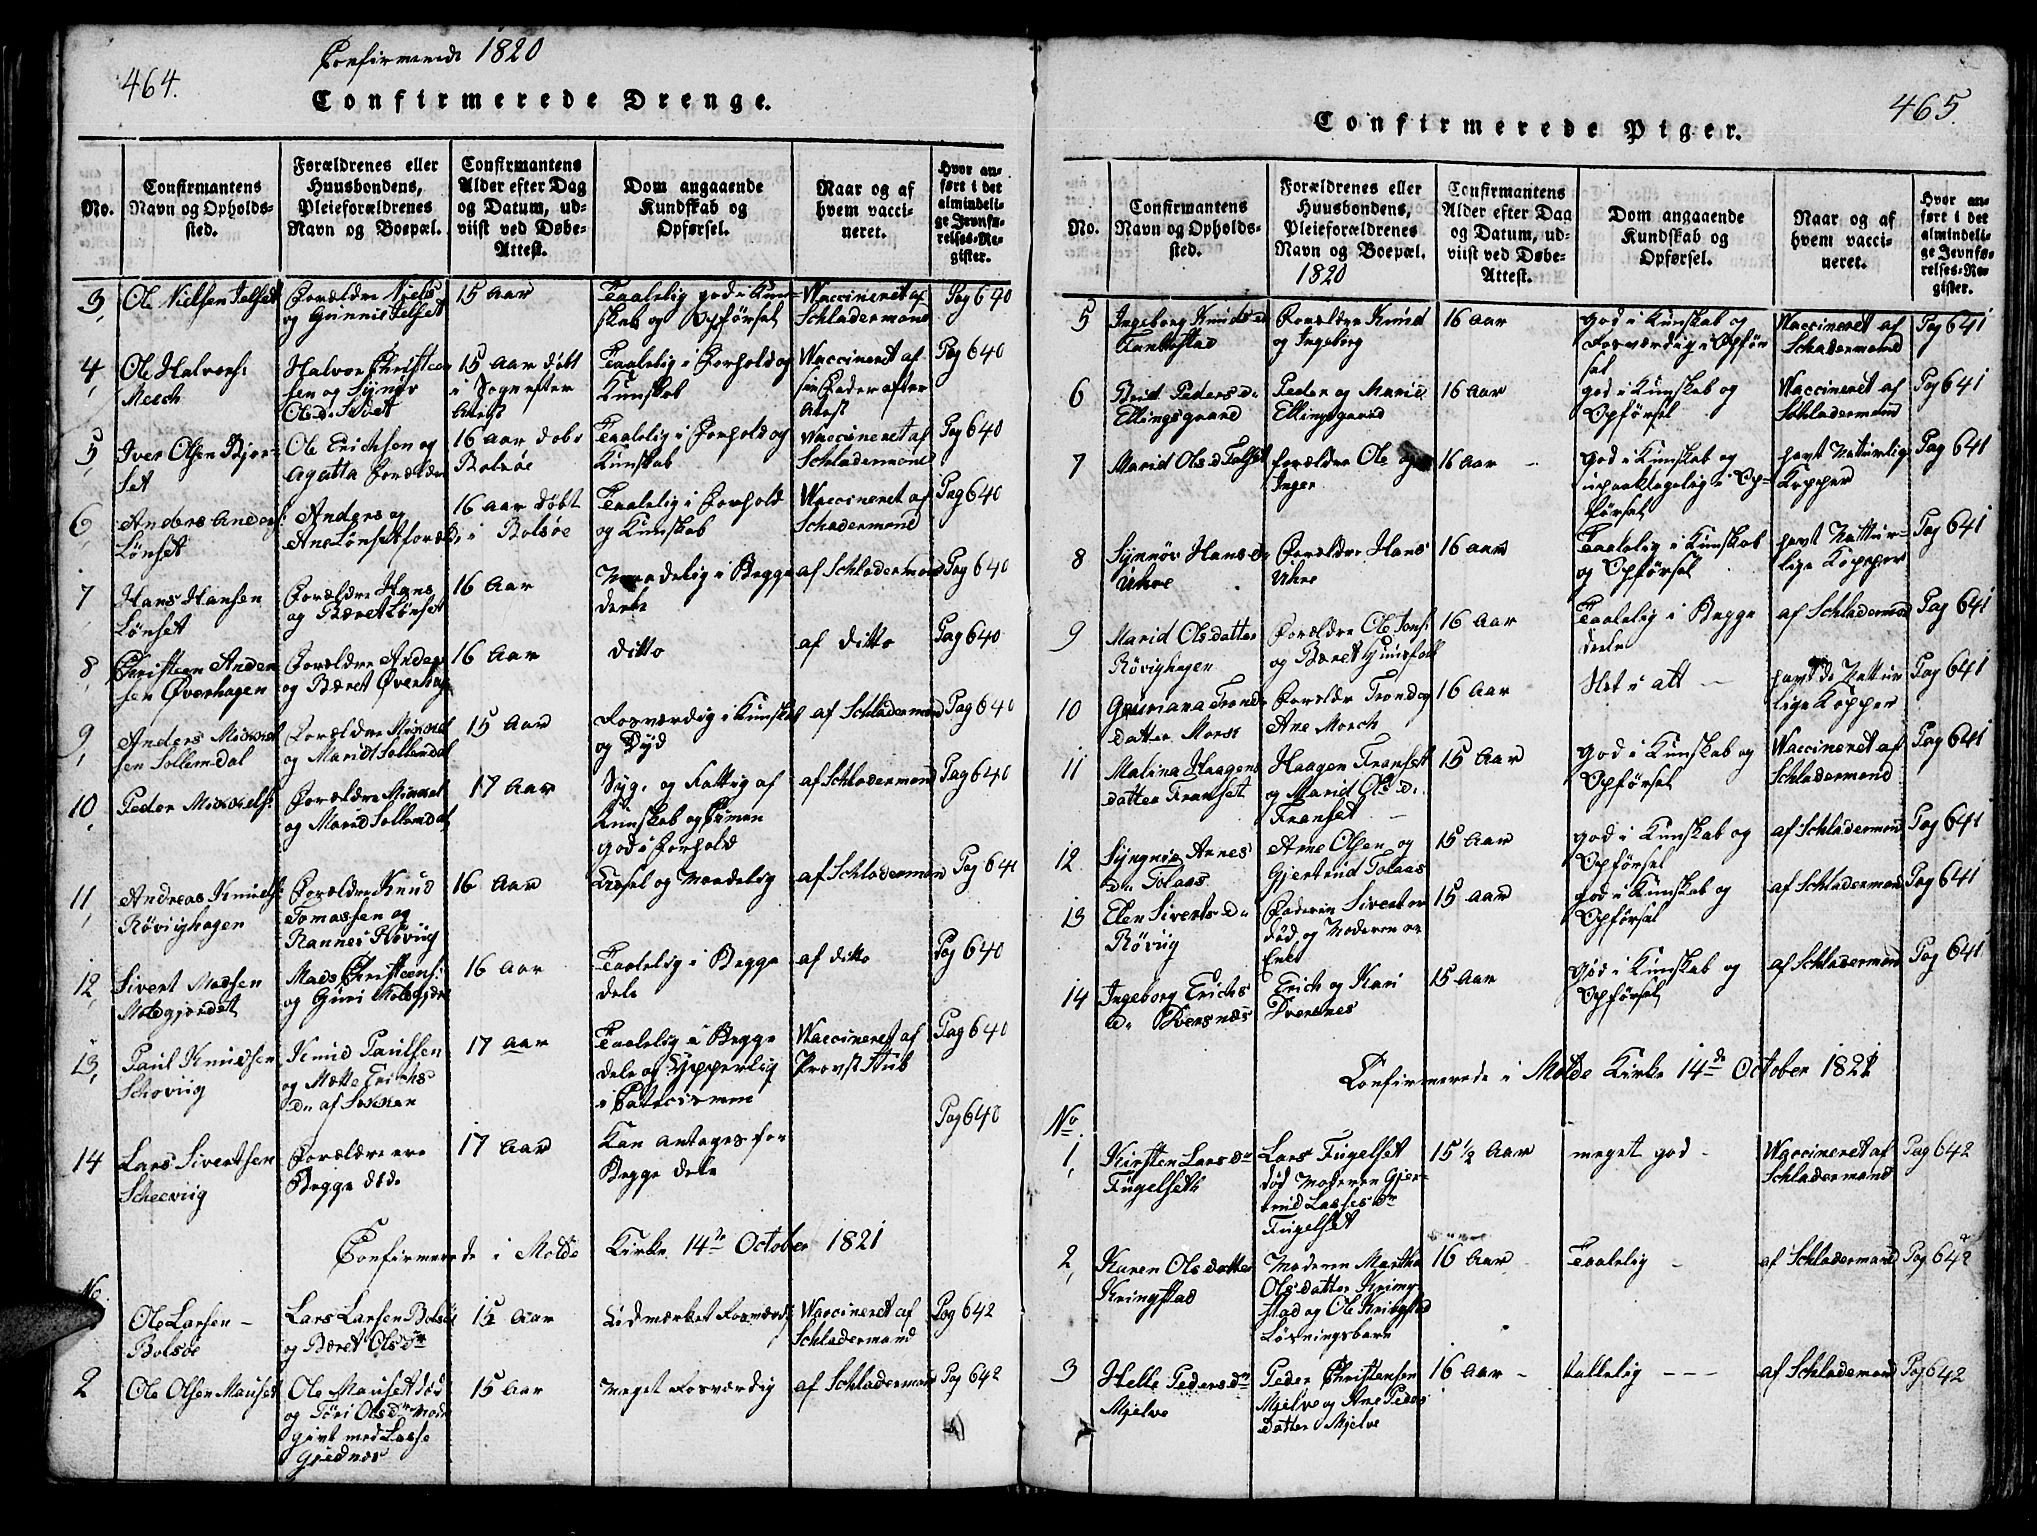 464.
Confirmerede 1820
Confirmerede Drenge.
No.
Confirmantens
Navn og Opholds-
sted.
Forældrenes eller
Huusbondens,
Pleieforældrenes
Navn og Boepæl.
Confirmantens
Alder efter Dag
og Datum, ud-
viist ved Døbe-
Attest.
Dom angaaende
Kundskab og
Opførsel.
Naar og af
hvem vacci-
neret.
Hvor an-
ført i det
almindeli-
ge Jevnfø-
relses-Re-
gister.
3, Ole Nielsen Jelset
Forældre Niels
og Gunnis Jelset
15 Aar
Taalelig god i Kun-
skab og Opførsel
Waccineret af
Schladermand
Pag 640
4, Ole Halvors:
Meech
Halvor Christen
sen og Synøv
Olsd. Sodet
15 Aar døbt
i Sogn efter
Attest
Taalelig i Forhold og
Kunskab
Waccineret af
sin Fader efter
Atest
Pag 640
5, Iver Olsen Bjor-
set
Ole Erichsen og
Agatta Forældre
16 Aar døbt
Bolsøe
Taalelig i Forhold og
Kunskab
Waccineret af
Schladermand
Pag 640
6, Anders Anders:
Lønset
Anders og
Ane Lønset foræld
16 Aar døbt
i Bolsøe
Taalelig i Forhold
og Kunskab
Waccineret af
Schadermand
Pag 640
7, Hans Hansen
Lønset
Forældre Hans
og Bæret Lønset
16 Aar
Maadelig i Begge
dele
af Schladermand
Pag 640
8, Christeen Anden
sen Øverhagen
Forældre Anders
og Bæret Øverhag
16 Aar
ditto
af ditto
Pag 640
9, Anders Mickel
sen Sollemdal
Forældre Mickel
og Marit Sollemdal
15 Aar
Rosværdig i Kunskab
og Dyd
af Schladermand
Pag 640
10, Peder Mickels:
Forældre Mickel
og Marid Sollemdal
17 Aar
Syg, og Fattig af
Kunskab og
god i Forhold
af Schladermand
Pag 640
11, Andreas Knuds:
Røvighagen
Forældre Knud
Tomassen og
Rannei Røviig
16 Aar
Ussel og Maadelig
af Schladermand
Pag 641
12, Sivert Madsen
Moegjerdet
Mads Christeens:
og Guri
16 Aar
Taalelig i Begge
dele
af ditto
Pag 640
13, Paul Knudsen
Schoviig
Knud Paulsen
og Mætte Erichs
D. af
17 Aar
Taalelig i Begge
dele og Ypperlig
i Catecismen
Waccineret af
Provst Stub
Pag 640
14 Lars Sivertsen
Scheeviig
Forældre ere
Begge død.
17 Aar
Kan antages for
Begge dele
Pag 640
Confirmerede i Molde Kirke 14de October 1821
No.
Ole Larsen -
Bolsøe
Lars Larsen Bolsøe
og Bæret Olsdr
15 Aar
Udmærket Rosværdig
Waccineret af
Schladermand
Pag 642
2 Ole Olsen Mauset
Ole Mauset død
og Tøri Olsdr Mode
givt med Lasse
Gjednæs
15 Aar
Meget Rosværdig
af Schladermand
Pag 642
465
Confirmerede Piger.
No.
Confirmantens
Navn og Opholds-
sted.
Forældrenes eller
Huusbondens,
Pleieforældrenes
Navn og Boepæl.
1820
Confirmantens
Alder efter Dag
og Datum, ud-
viist ved Døbe-
Attest.
Dom angaaende
Kundskab og
Opførsel.
Naar og af
hvem vacci-
neret.
Hvor an-
ført i det
almindeli-
ge Jevnfø-
relses-Re-
gister.
5 Ingeborg Knuds D
Forældre Knud
og Ingebirg
16 Aar
God i Kunskab og
Rosværdig i Opfør
sel
Waccineret af
Schadermand
Pag 641
6 Brid Peders D.
Ellingsgaard
Peder og Marie
Ellingsgaard
16 Aar
god i Kunskab og
Opførsel
Waccineret af
Schladermand
Pag 641
7 Marid Ols D.
Forældre Ole og
Inger
16 Aar -
god i Kunskab og
upaaklagelig i Op-
førsel
havt Naturlig
Kopper
Pag 641
8 Synnøv Hans D.
Uhre
Forældre Hans
Uhre
16 Aar
Taalelig i Kunskab
og Opførsel
havt Nattur-
lige Kopper
Pag 641
9 Marid Olsdatter
Røvighagen
Forældre Ole Jons:
og Bæret Huusfolk
16 Aar
Taalelig i Begge
deele
af Schladermand
Pag 641
10 Gauriana Trond
datter Morse
Forældr Trond og
Ane Morch
16 Aar
Slet i att -
havt de Nattur
lige Kopper
Pag 641
11 Malina Haagens
datter Franset
Haagen Franset
og Marid Ols D.
Franset -
15 Aar
god i Kunskab og
Opførsel
Waccineret af
Schladermand
Pag 641
12 Syngnie Arnes
D. Tolaas
Arne Olsen og
Gjertrud Tolaas
15 Aar
god i Kunskab og
Opførsel
af Schladermand
Pag 641
13 Elen Siverts D.
Røviig
Faderen Sivert er
død og Moderen er
Enke
15 Aar
god i Kunskab og
Opførsel
af Schladermand
Pag 641
14 Ingeborg Erichs
D. Tversnæs
Erich og Kari
Tversnes
15 Aar
God i Kunskab og
Opførsel
af Schladermand
Pag 641
Confirmerede i Molde Kirke 14de October 1821
No.
1, Kirsten Lars Dr
Fugelseth
Lars Fugelset
død Moderen Gjer-
trud Lasses Dr
Fugelset
15 1/2 Aar
meget god -
Waccineret af
Schladermand
Pag 642
2, Karen Olsdatter
Kringstad
Moderen Martha
Olsdatter Kring
stad og Ole Kringstad
Løsningsbarn
16 Aar
Taalelig -
af Schladermand
Pag 642
3 Helle Peders Dr
Mjelve
Peder Christensen
Mjelve og Ane Peders
datter Mjelve
16 Aar -
tallelig - - -
af Schladermand
Pag 642